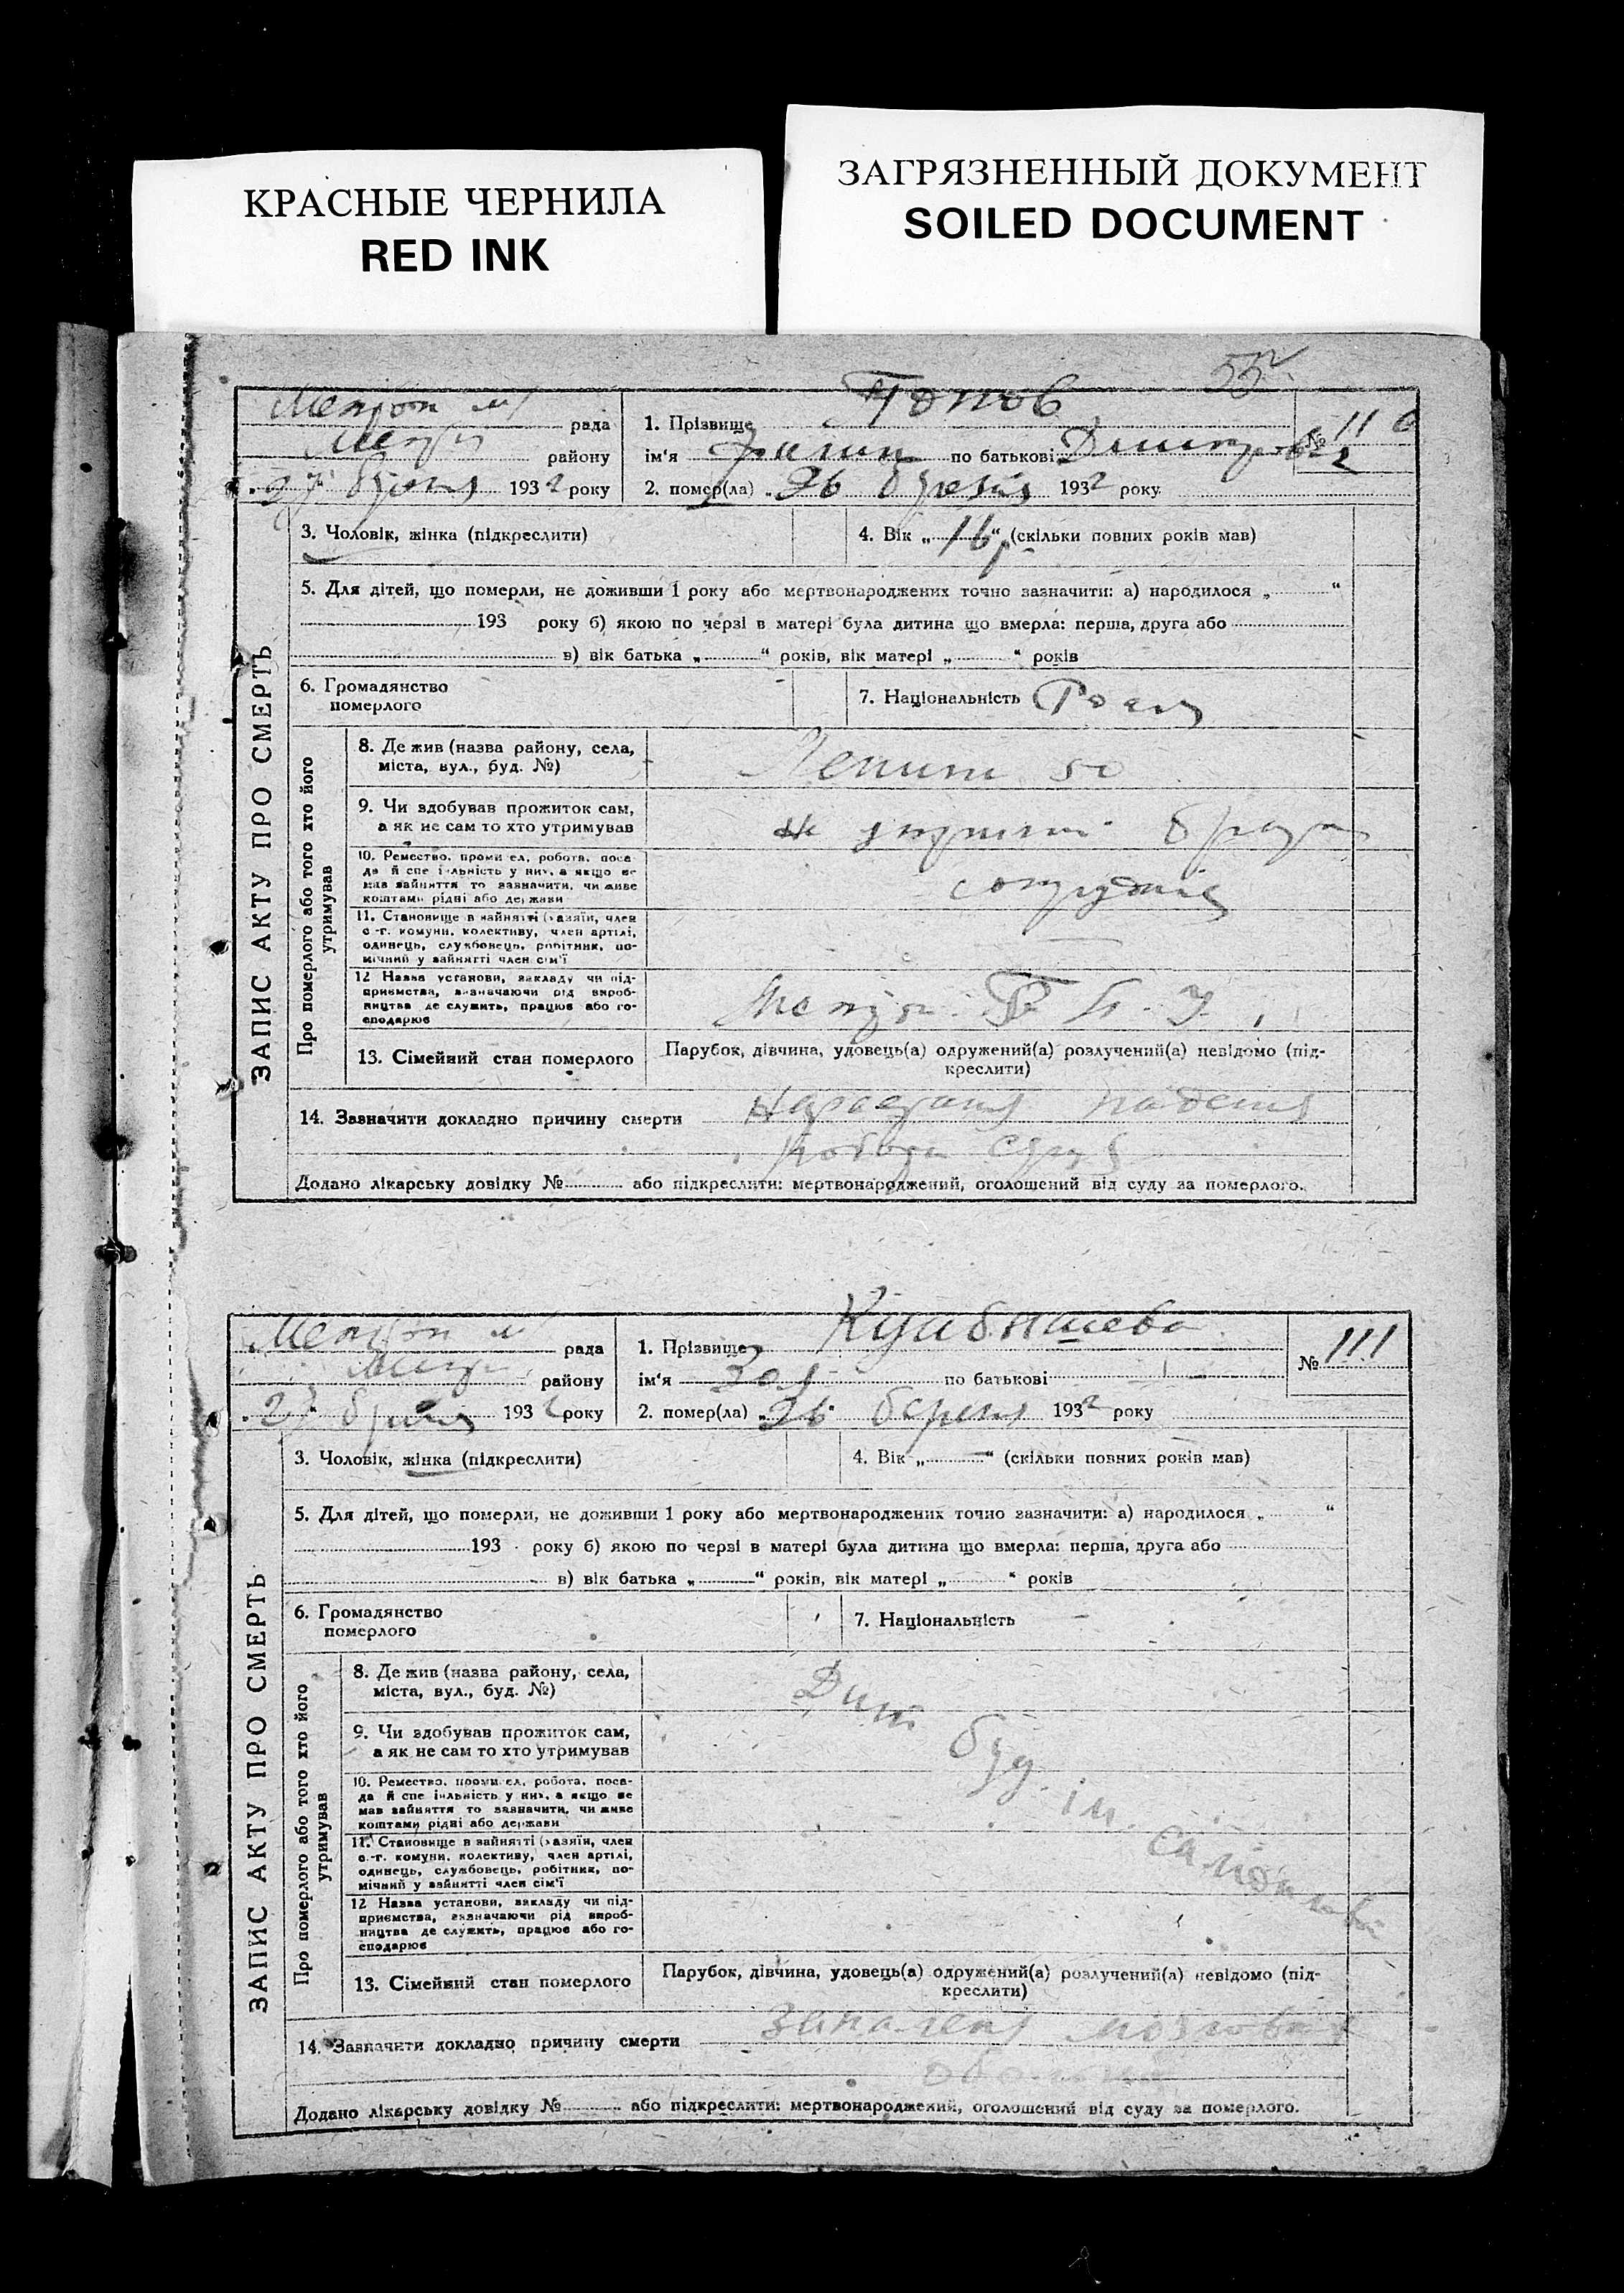 КРАСНЫЕ ЧЕРНИЛА
RED INK
ЗАГРЯЗНЕННЫЙ ДОКУМЕНТ
SOILED DOCUMENT
ЗАПИС АКТУ ПРО СМЕРТЬ
рада
району
27 1932 року
1. Прізвище Попов
ім'я по батькові
№ 110
2. помер(ла) „26 1932 року
3. Чоловік, жінка (підкреслити)
4. Вік „16р“ (скільки повних років мав)
5. Для дітей, що померли, не доживши 1 року або мертвонароджених точно зазначити: а) народилося „ “
193 року б) якою по черзі в матері була дитина що вмерла: перша, друга або
в) вік батька „ “ років, вік матері „ “ років
6. Громадянство
померлого
7. Національність
Про померлого або того хто його
утримував
8. Де жив (назва району, села,
міста, вул., буд. №)
50
9. Чи здобував прожиток сам,
а як не сам то хто утримував
10. Ремество, промисел, робота, поса-
да й спеціяльність у них, а якщо не
мав зайняття то зазначити, чи живе
коштами рідні або держави
11. Становище в зайнятті (хазяїн, член
с.-г. комуни, колективу, член артілі,
одинець, службовець, робітник, по-
мічний у зайнятті член сім'ї
12 Назва установи, закладу чи під-
приємства, зазначаючи рід вироб-
ництва де служить, працює або го-
сподарює
13. Сімейний стан померлого
Парубок, дівчина, удовець(а) одружений(а) розлучений(а) невідомо (під-
креслити)
14. Зазначити докладно причину смерти
Додано лікарську довідку № або підкреслити: мертвонароджений, оголошений від суду за померлого.
ЗАПИС АКТУ ПРО СМЕРТЬ
рада
району
27 1932 року
1. Прізвище Куйбишева
ім'я Зоя по батькові —
№ 111
2. помер(ла) „26“ березня 1932 року
3. Чоловік, жінка (підкреслити)
4. Вік „—“ (скільки повних років мав)
5. Для дітей, що померли, не доживши 1 року або мертвонароджених точно зазначити: а) народилося „ “
193 року б) якою по черзі в матері була дитина що вмерла: перша, друга або
в) вік батька „ “ років, вік матері „ “ років
6. Громадянство
померлого
7. Національність –
Про померлого або того хто його
утримував
8. Де жив (назва району, села,
міста, вул., буд. №)
9. Чи здобував прожиток сам,
а як не сам то хто утримував
буд. ім.
10. Ремество, промисел, робота, поса-
да й спеціяльність у них, а якщо не
мав зайняття то зазначити, чи живе
коштами рідні або держави
11. Становище в зайнятті (хазяїн, член
с.-г. комуни, колективу, член артілі,
одинець, службовець, робітник, по-
мічний у зайнятті член сім'ї
12 Назва установи, закладу чи під-
приємства, зазначаючи рід вироб-
ництва де служить, працює або го-
сподарює
13. Сімейний стан померлого
Парубок, дівчина, удовець(а) одружений(а) розлучений(а) невідомо (під-
креслити)
14. Зазначити докладно причину смерти Запалення
Додано лікарську довідку № або підкреслити: мертвонароджений, оголошений від суду за померлого.